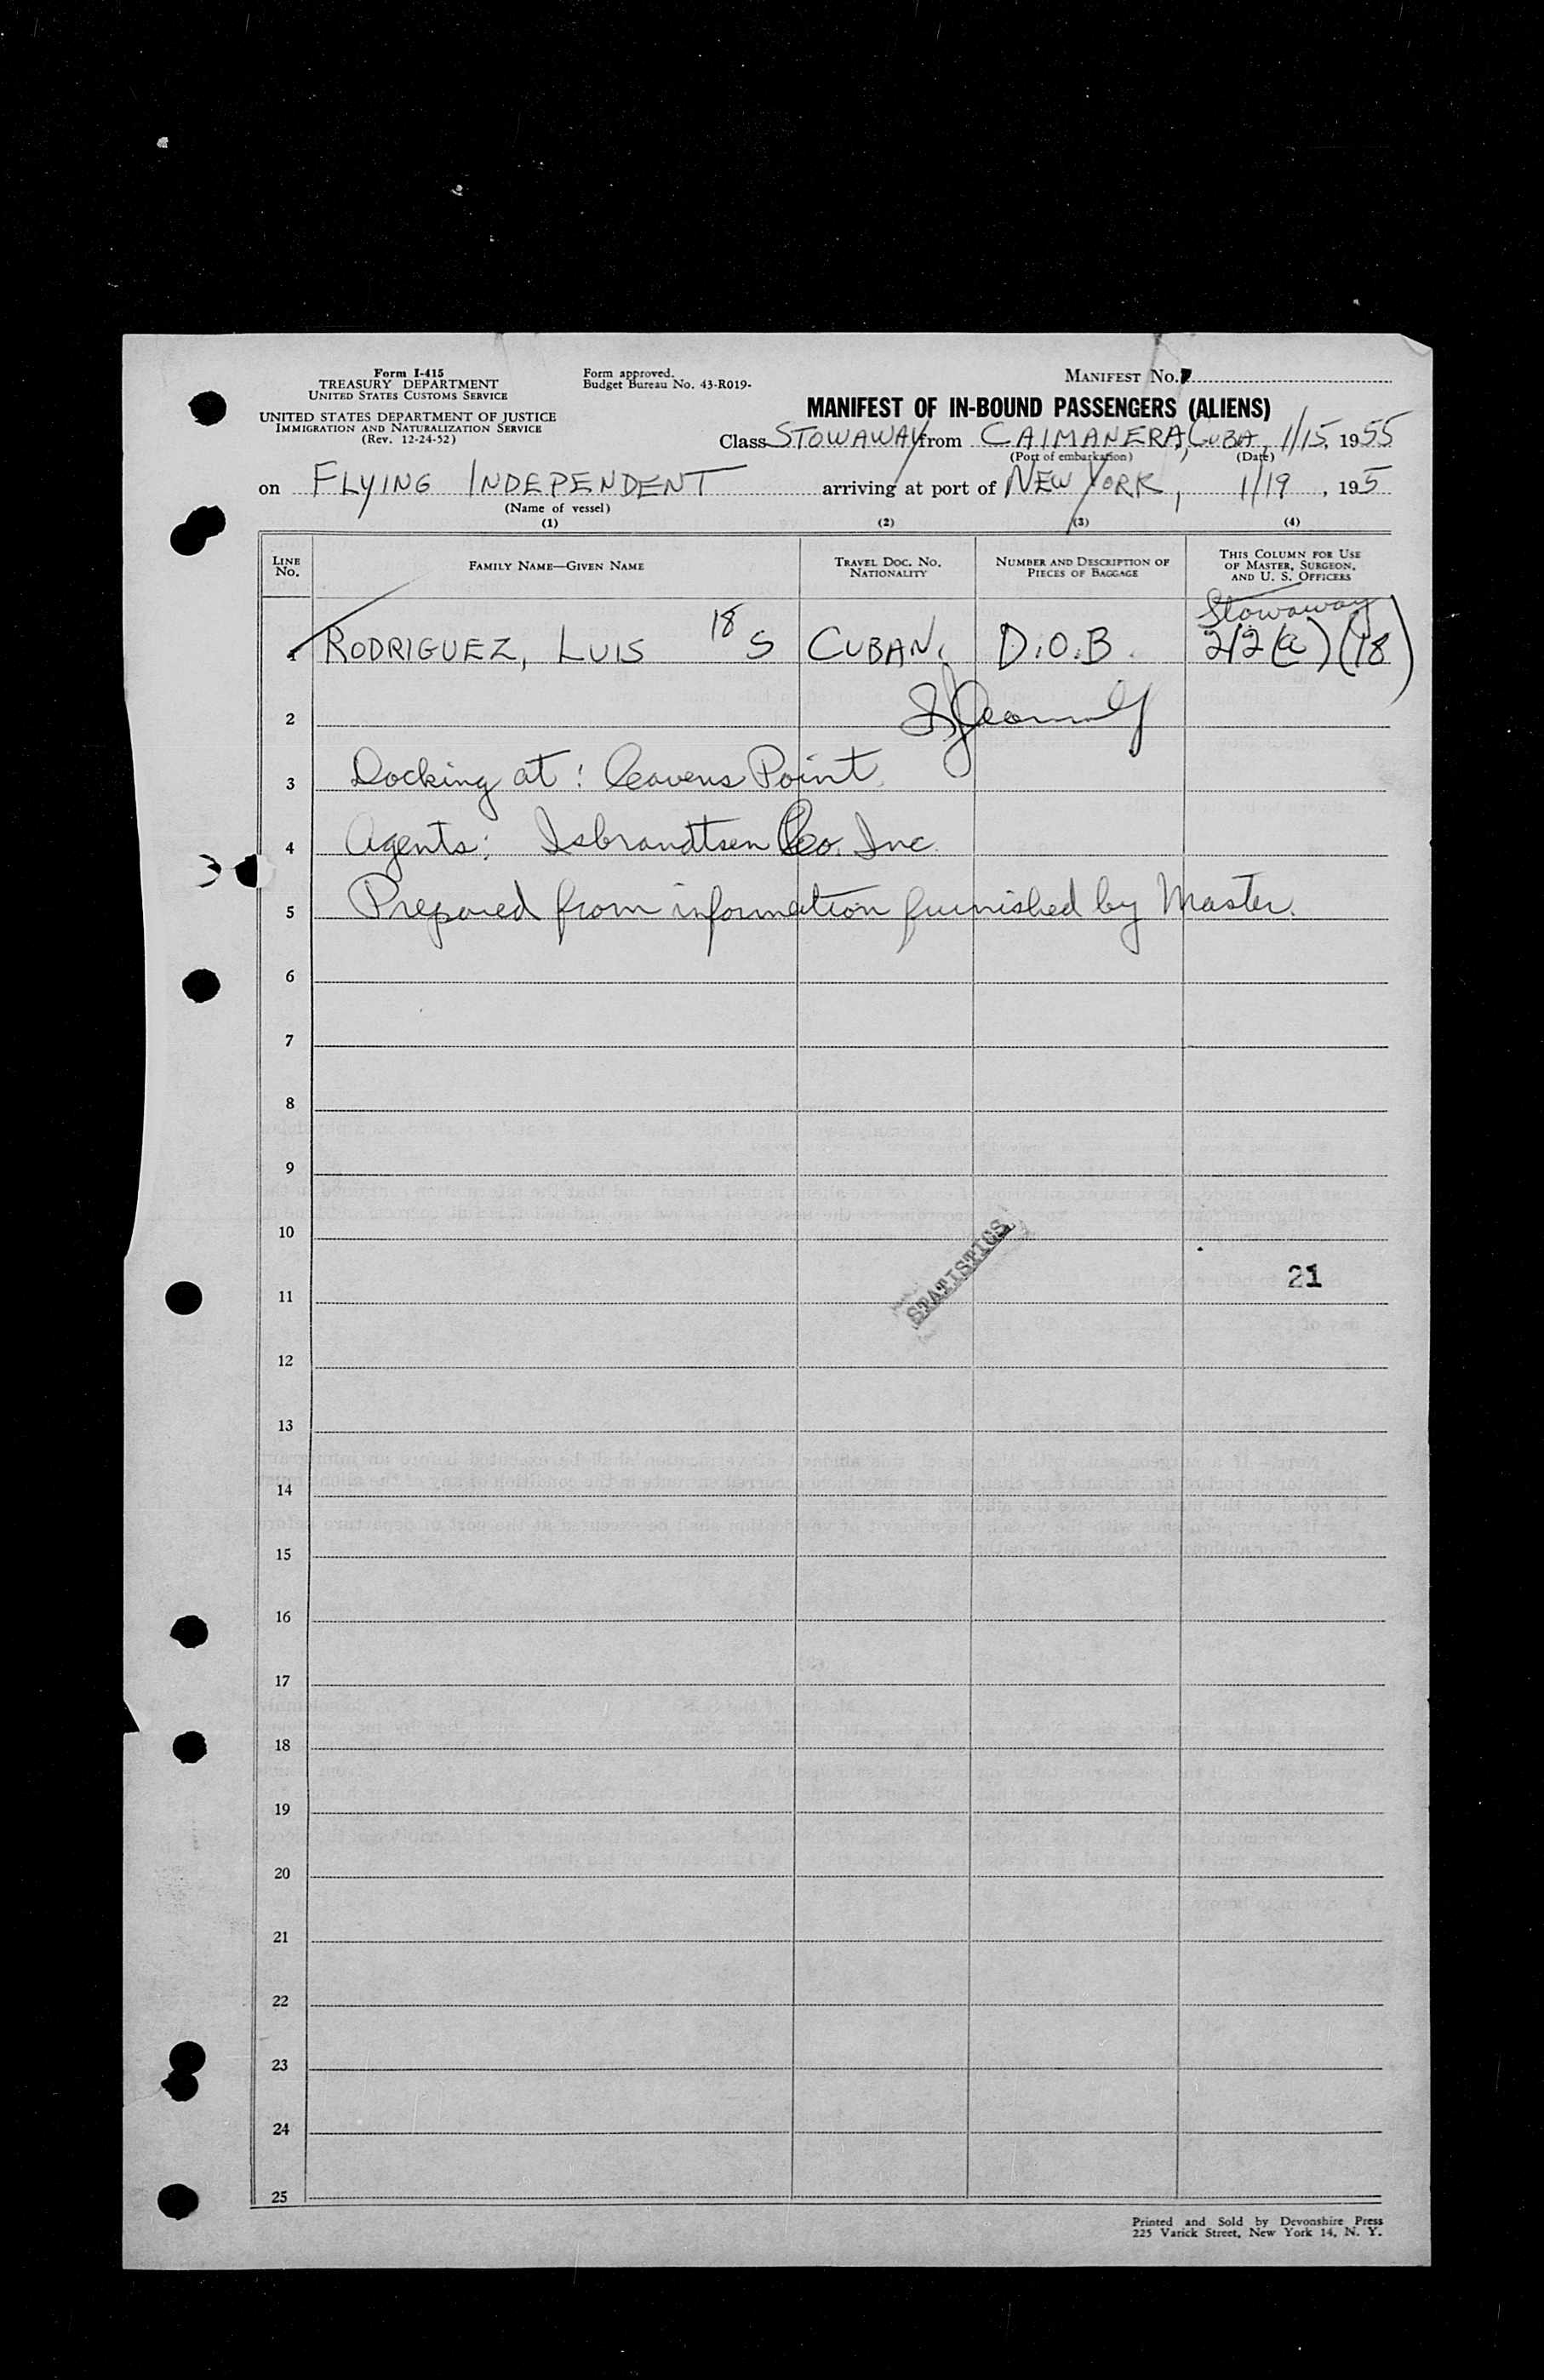 Form I-415
TREASURY DEPARTMENT
UNITED STATES CUSTOMS SERVICE
UNITED STATES DEPARTMENT OF JUSTICE
IMMIGRATION AND NATURALIZATION SERVICE
(Rev. 12-24-52)
Form approved.
Budget Bureau No. 43-R019-
MANIFEST NO.
MANIFEST OF IN-BOUND PASSENGERS (ALIENS)
Class STOWAWAY from CAIMANERA, CUBA, 1/15, 1955
(Port of embarkation) (Date)
on FLYING INDEPENDENT arriving at port of NEW YORK, 1/19, 195
(Name of vessel)
(1) (2) (3) (4)
LINE NO. FAMILY NAME—GIVEN NAME TRAVEL DOC. NO. NATIONALITY NUMBER AND DESCRIPTION OF PIECES OF BAGGAGE THIS COLUMN FOR USE OF MASTER, SURGEON, AND U. S. OFFICERS
Stowaway
1 RODRIGUEZ, LUIS 18 S CUBAN. D.O.B. 212(a)(18)
2
3 Docking at: Cavens Point
4 Agents: Isbrandtsen Co. Inc.
5 Prepared from information furnished by Master.
6
7
8
9
10
STATISTICS
21
11
12
13
14
15
16
17
18
19
20
21
22
23
24
25
Printed and Sold by Devonshire Press
225 Varick Street, New York 14, N. Y.